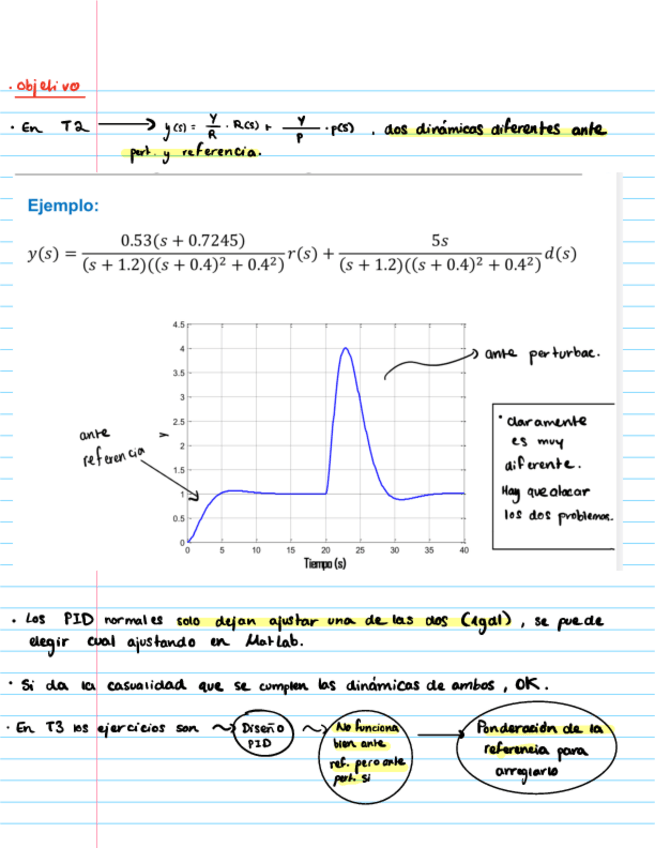 · Objetivo
· En T2 → y(s) = Y/R · R(s) + Y/P · p(s) , dos dinámicas diferentes ante
pert. y referencia.
Ejemplo:
y(s) = 0.53(s + 0.7245) / (s + 1.2)((s + 0.4)² + 0.4²) r(s) + 5s / (s + 1.2)((s + 0.4)² + 0.4²) d(s)
4.5
4
3.5
3
2.5
2
1.5
1
0.5
0
0 5 10 15 20 25 30 35 40
Tiempo (s)
ante perturbac.
ante
referencia
· claramente
es muy
diferente.
Hay que atacar
los dos problemas.
· Los PID normales solo dejan ajustar una de las dos (1gdl), se puede
elegir cual ajustando en MatLab.
· Si da la casualidad que se cumplen las dinámicas de ambos, OK.
· En T3 los ejercicios son ~> Diseño
PID
~> No funciona
bien ante
ref. pero ante
pert. si
→ Ponderación de la
referencia para
arreglarlo